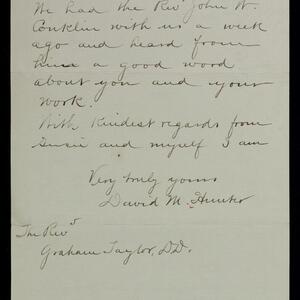 We had the Rev. John W.
Conklin with us a week
ago and heard from
him a good word
about you and your
work.
With kindest regards from
Susie and myself I am
Very truly yours
David M. Hunter
The Revd
Graham Taylor, DD.